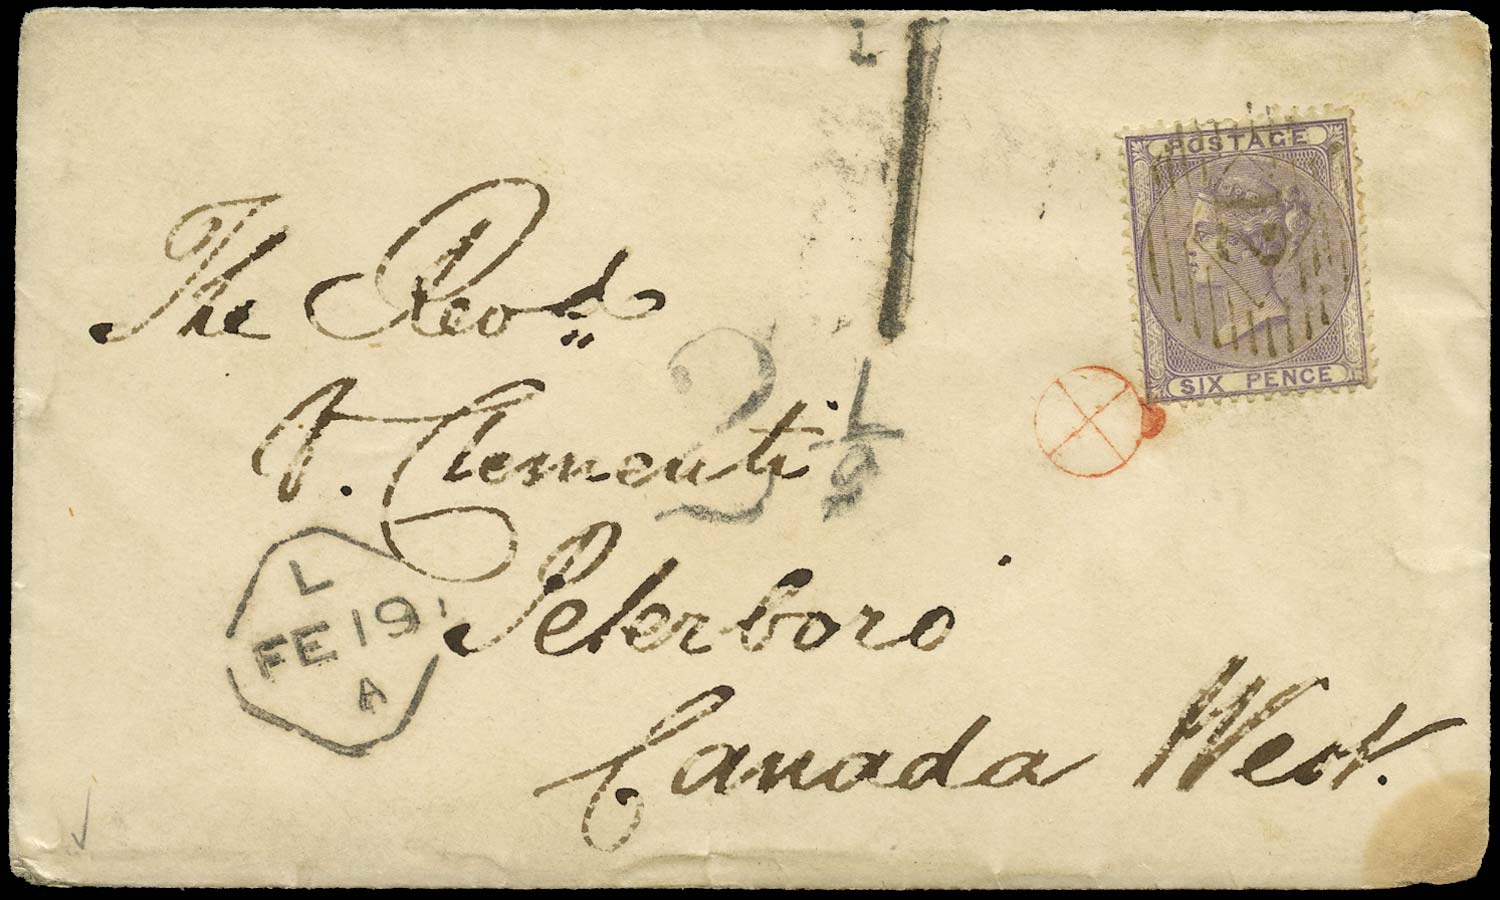 POSTAGE
SIX PENCE
The Revd
V. Clementi
Peterboro
Canada West.
2 1/2
L
FE 19
A